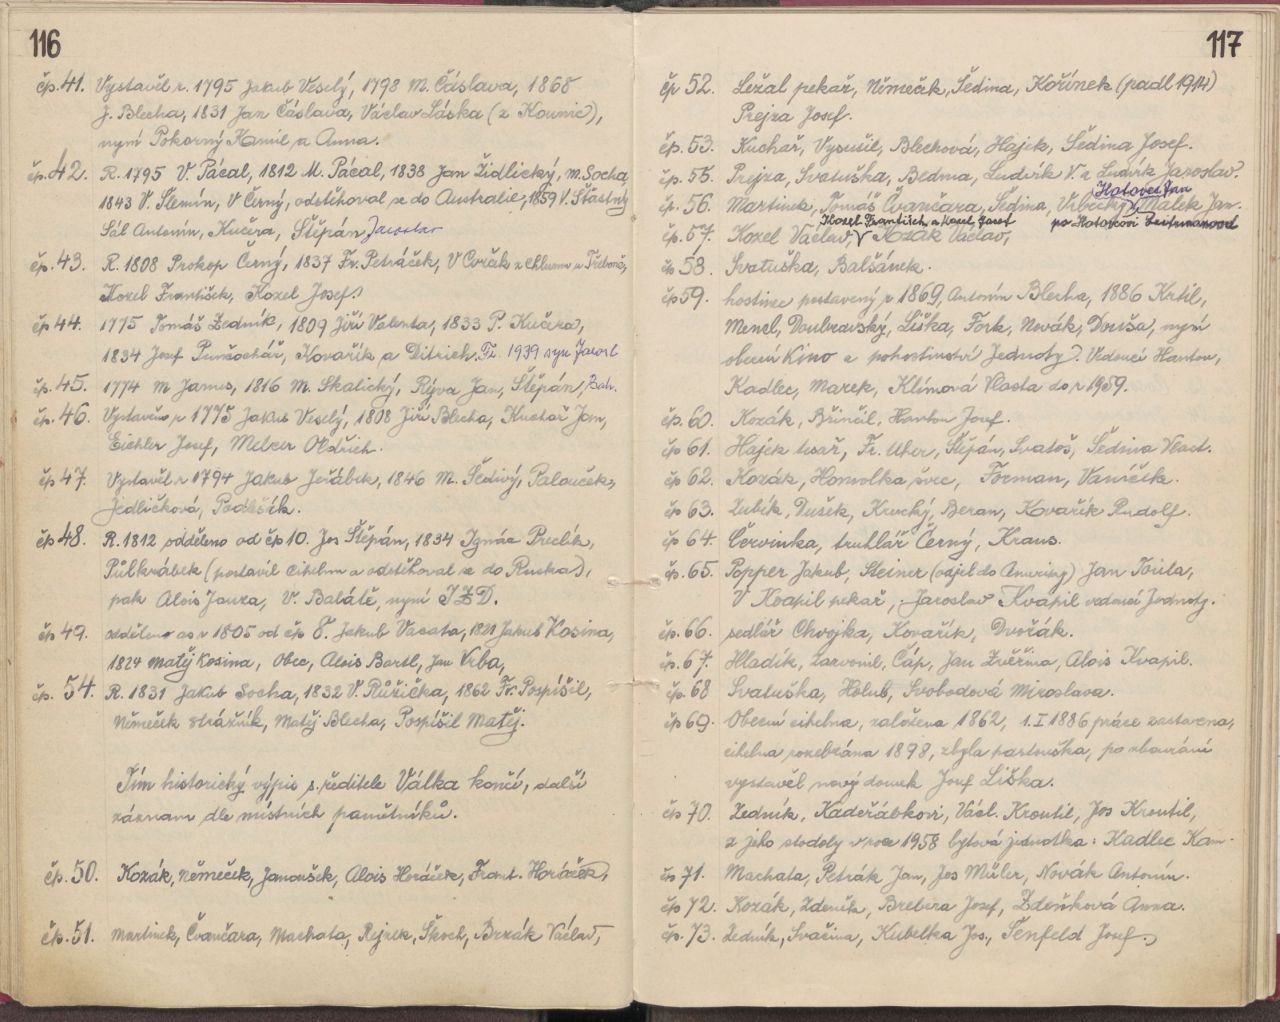 116
čp. 41. Vystavěl r. 1795 Jakub Veselý, 1798 M. Čáslava, 1868
J. Blecha, 1831 Jan Čáslava, Václav Láska (z Kounic),
nyní Pokorný Kamil a Anna.
čp. 42. R. 1795 V. Pácal, 1812 M. Pácal, 1838 Jan Židlický, M. Socha,
1843 V. Šlemín, V Černý, odstěhoval se do Australie, 1859 V. Šťastný
Sál Antonín, Kučera, Štěpán Jaroslav
čp. 43. R. 1808 Prokop Černý, 1837 Fr. Petráček, V Cvrček z Chlumu u Třeboně,
Kozel František, Kozel Josef.
čp 44. 1775 Tomáš Zedník, 1809 Jiří Valenta, 1833 P. Kučera,
1834 Josef Punčochář, Kovařík a Ditrich. Fr. 1939 syn Jarosl
čp. 45. 1774 M Janus, 1816 M. Skalický, Rýva Jan, Štěpán,
čp. 46. Vystavěno r 1775 Jakub Veselý, 1808 Jiří Blecha, Kuchař Jan,
Eichler Josef, Melzer Oldřich.
čp 47. Vystavěl r 1794 Jakub Jeřábek, 1846 M. Šedivý, Palouček,
Jedličková, Podešík.
čp 48. R. 1812 odděleno od čp 10. Jos Štěpán, 1834 Ignác Preclík,
Půlkrábek (postavil cihelnu a odstěhoval se do Ruska),
pak Alois Jouza, V. Balátě, nyní JZD.
čp 49. odděleno as r 1805 od čp 8. Jakub Vacata, 1821 Jakub Kosina,
1824 Matěj Kosina, Obec, Alois Bartl, Jan Vrba,
čp. 54. R. 1831 Jakub Socha, 1832 V. Růžička, 1862 Fr. Pospíšil,
Němeček strážník, Matěj Blecha, Pospíšil Matěj.
Tím historický výpis s. ředitele Válka končí, další
záznam dle místních pamětníků.
čp. 50. Kozák, Němeček, Janoušek, Alois Horáček, Frant. Horáček,
čp. 51. Martinek, Čvančara, Machata, Rejzek, Škoch, Brzák Václav,
117
čp 52. Ležal pekař, Němeček, Šedina, Kořínek (padl 1914)
Prejza Josef.
čp. 53. Kuchař, Vysušil, Blechová, Hajek, Šedina Josef.
čp. 55. Prejza, Svatuška, Bedrna, Ludvík V. a Ludvík Jaroslav.
Hotovec Jan
čp. 56. Martinek, Tomáš Čvančara, Šedina, Vrbecký, Málek Jan.
Kozel František a Kozel Josef po Hotovcovi
čp. 57. Kozel Václav, Kozák Václav,
čp 58. Svatuška, Balšánek.
čp 59. hostinec postavený r 1869, Antonín Blecha, 1886 Krtil,
Menzl, Doubravský, Liška, Fork, Novák, Douša, nyní
obecní Kino a pohostinství Jednoty. Vedoucí Hanton,
Kadlec, Marek, Klímová Vlasta do r 1959.
čp. 60. Kozák, Břinčil, Hanton Josef.
čp 61. Hajek tesař, Fr. Uher, Štěpán, Svatoš, Šedina Vlast.
čp 62. Kozák, Honsolka švec, Forman, Vaníček.
čp 63. Zubík, Dušek, Kruchý, Beran, Kovařík Rudolf.
čp 64. Červinka, truhlář Černý, Kraus.
čp. 65. Popper Jakub, Steiner (odjel do Ameriky) Jan Touta,
V Kvapil pekař, Jaroslav Kvapil vedoucí Jednoty.
čp. 66. sedlář Chvojka, Kovařík, Dvořák.
čp. 67. Hladík, Zazvonil, Čáp, Jan Zvěřina, Alois Kvapil.
čp 68 Svatuška, Holub, Svobodová Miroslava.
čp 69. Obecní cihelna, založena 1862, 1. I 1886 práce zastavena,
cihelna rozebrána 1898, zbyla pastouška, po zbourání
vystavěl nový domek Josef Liška.
čp 70. Zedník, Kadeřábkovi, Václ. Kroutil, Jos Kroutil,
z jeho stodoly v roce 1958 bytová jednotka: Kadlec Kam.
čp 71. Machata, Petrák Jan, Jos Müler, Novák Antonín.
čp 72. Kozák, Zdeněk, Brebera Josef, Zdeňková Anna.
čp. 73. Zedník, Svačina, Kubelka Jos, Šenfeld Josef.